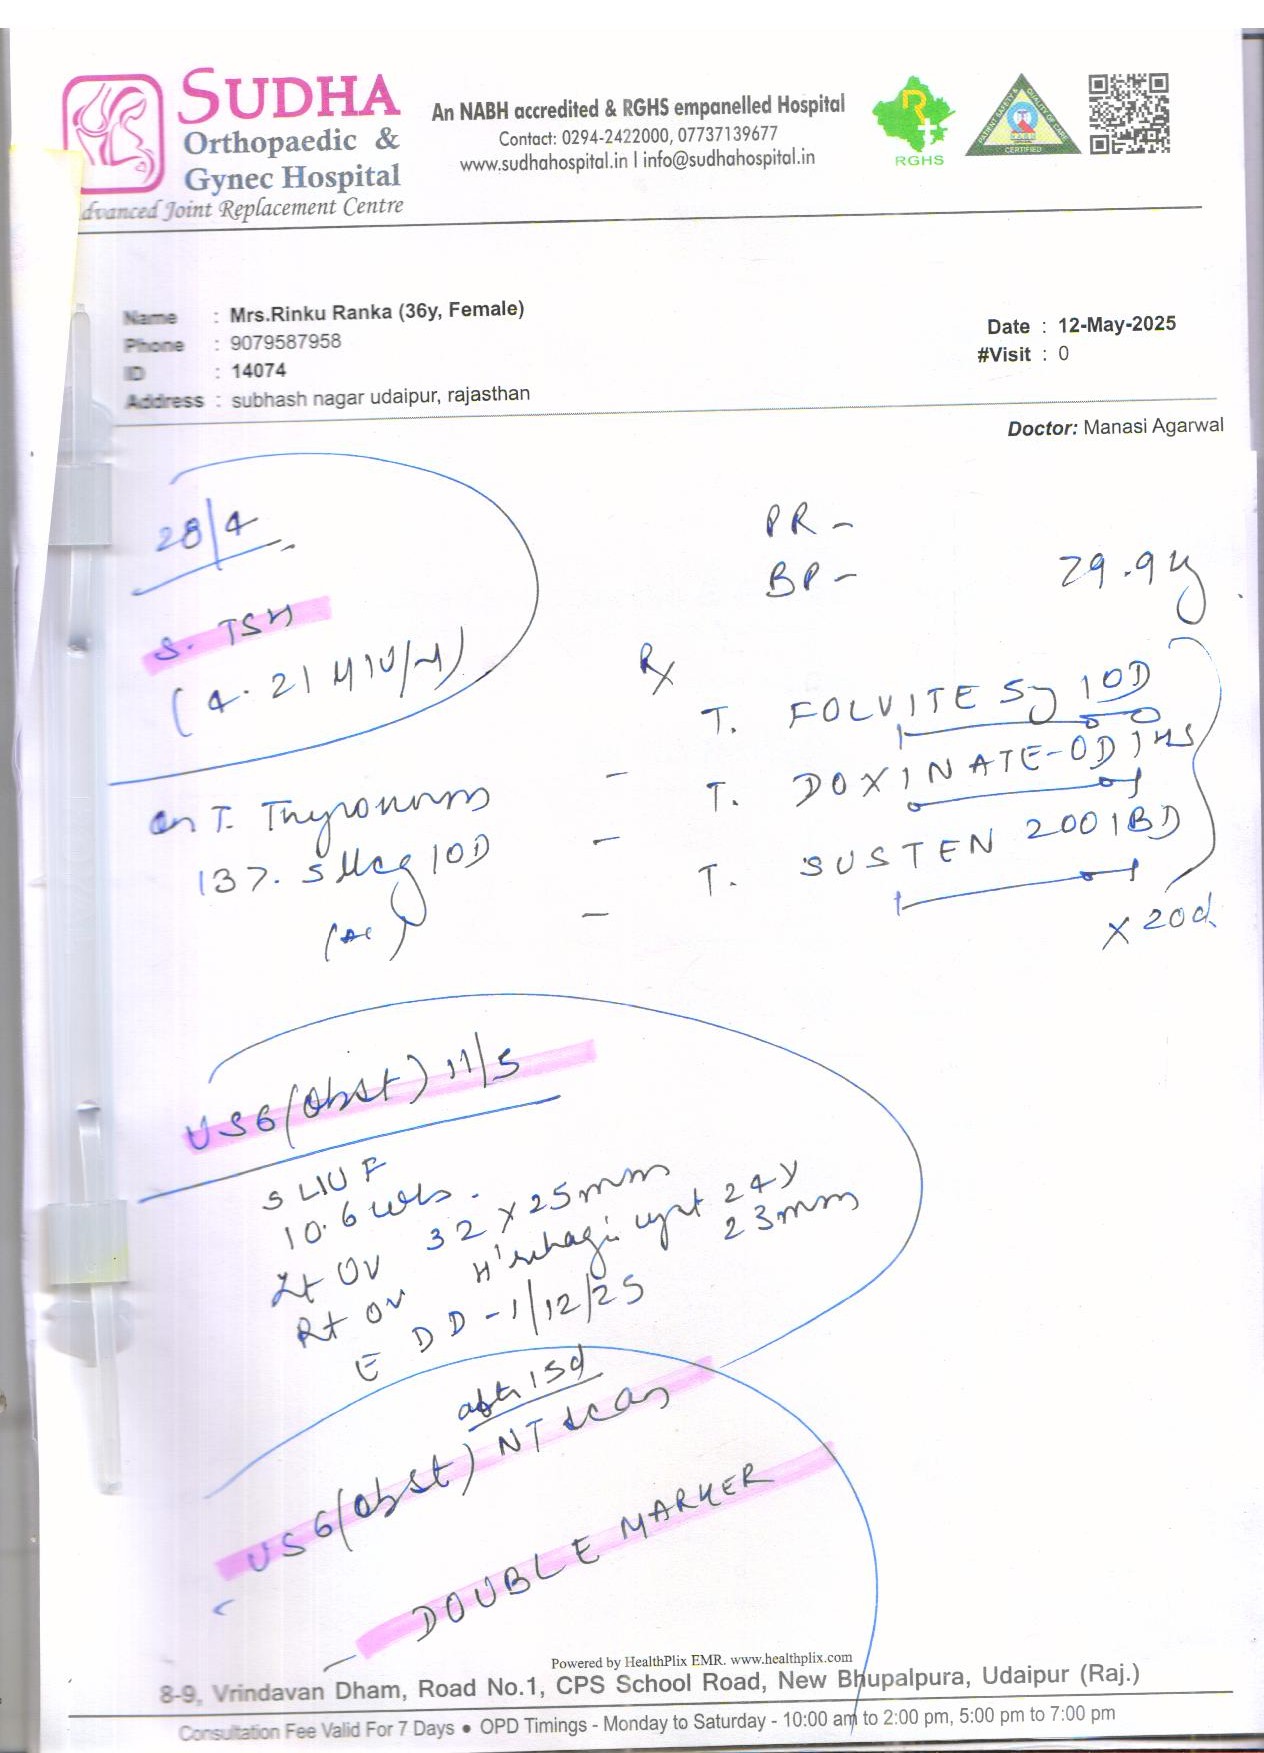 SUDHA
Orthopaedic &
Gynec Hospital
dvanced Joint Replacement Centre
An NABH accredited & RGHS empanelled Hospital
Contact: 0294-2422000, 07737139677
www.sudhahospital.in I info@sudhahospital.in
RGHS
CERTIFIED
Name : Mrs.Rinku Ranka (36y, Female)
Phone : 9079587958
ID : 14074
Address : subhash nagar udaipur, rajasthan
Date : 12-May-2025
#Visit : 0
Doctor: Manasi Agarwal
28/4
S. TSH
(4.21
PR -
BP -
Rx
T. FOLVITE 5 1OD
T. DOXINATE-OD 1HS
T. SUSTEN 200 1BD
x 20d
on T. Thyronorm
137.5 Mcg 1OD
USG (Obst) 11/5
SLIUF
10.6 wks.
Lt Ov 32 x 25mm
Rt Ov H'rhagic cyst 24x
23mm
EDD - 1/12/25
after 15d
USG (Obst) NT scan
- DOUBLE MARKER
Powered by HealthPlix EMR. www.healthplix.com
8-9, Vrindavan Dham, Road No.1, CPS School Road, New Bhupalpura, Udaipur (Raj.)
Consultation Fee Valid For 7 Days ● OPD Timings - Monday to Saturday - 10:00 am to 2:00 pm, 5:00 pm to 7:00 pm